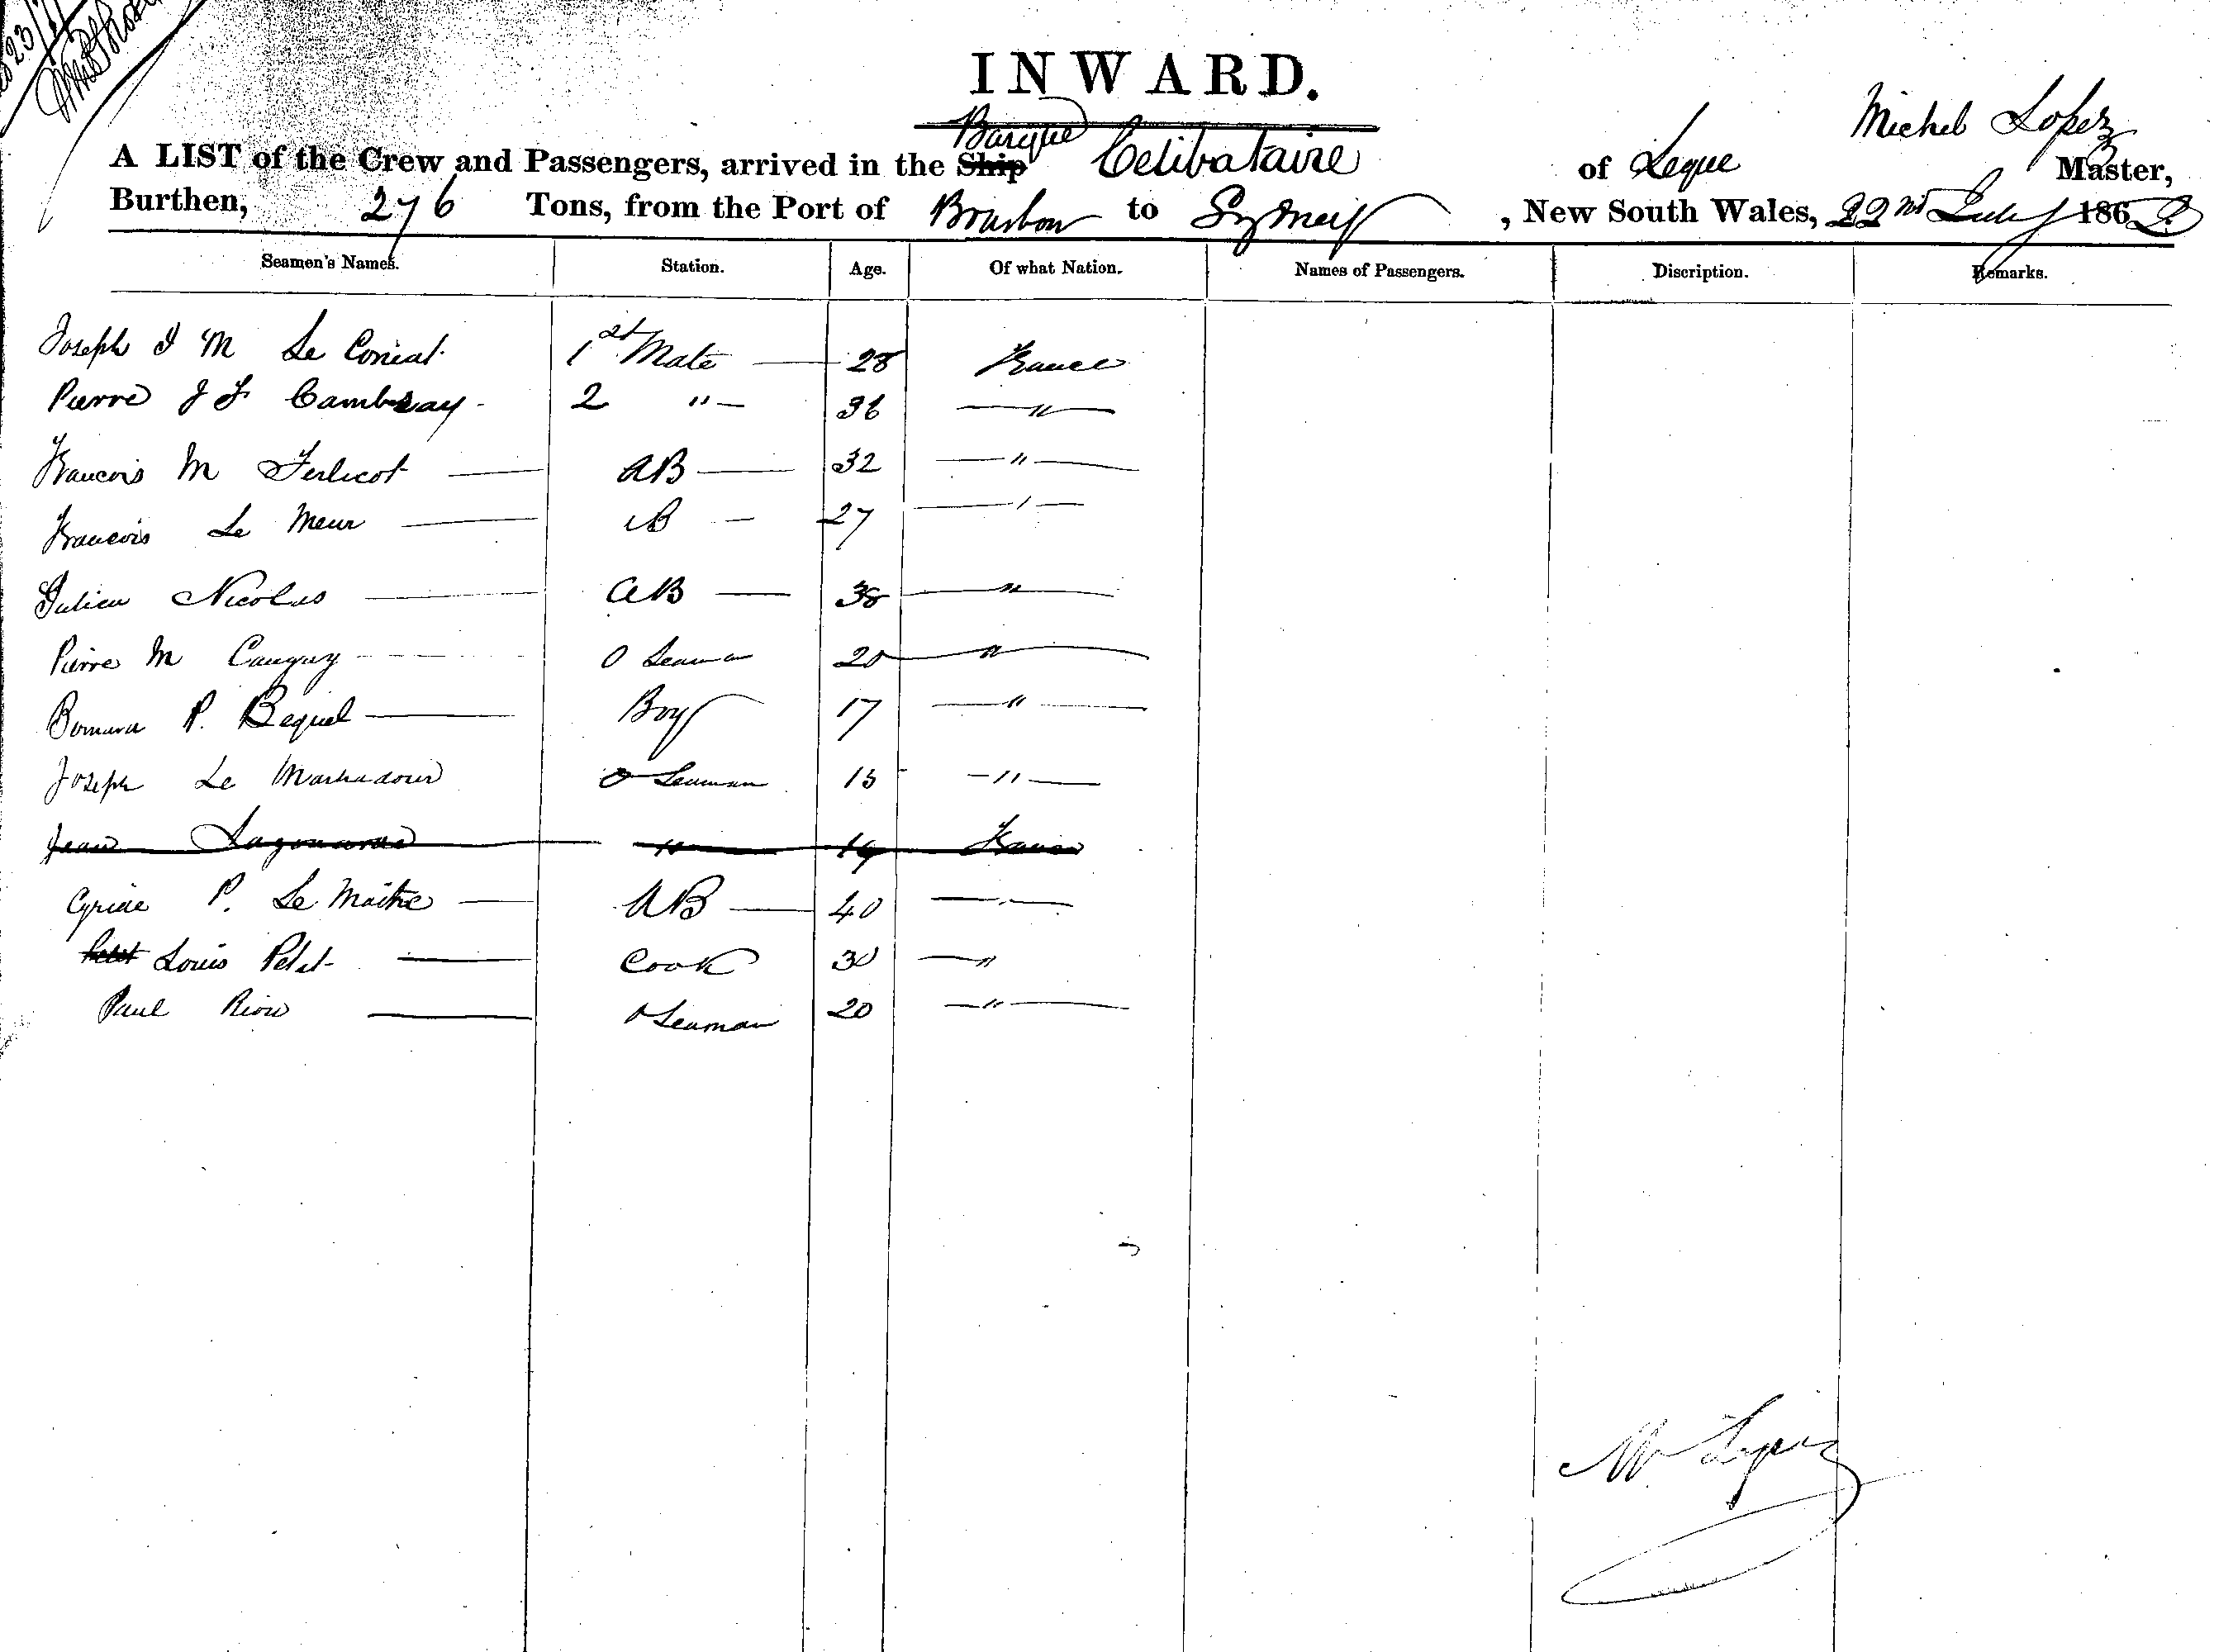 INWARD.
Michel Lopez
Barque
A LIST of the Crew and Passengers, arrived in the Ship Celibataire of Leque Master,
Burthen, 276 Tons, from the Port of Bourbon to Sydney , New South Wales, 22nd July 1862
Seamen's Names. Station. Age. Of what Nation. Names of Passengers. Discription. Remarks.
Joseph J M Le Coniat 1st Mate 28 France
Pierre J F Cambray 2 " 36 "
Francois M Ferlicot AB 32 "
Francois Le Meur AB 27 "
Julien Nicolas AB 38 "
Pierre M Cauguy O Seaman 20 "
P. Bequel Boy 17 "
Joseph Le Marhadour O Seaman 15 "
Jean " 19 France
Cyriac P. Le Maitre AB 40 "
Petit Louis Petit Cook 30 "
Paul Riou O Seaman 20 "
M Lopez